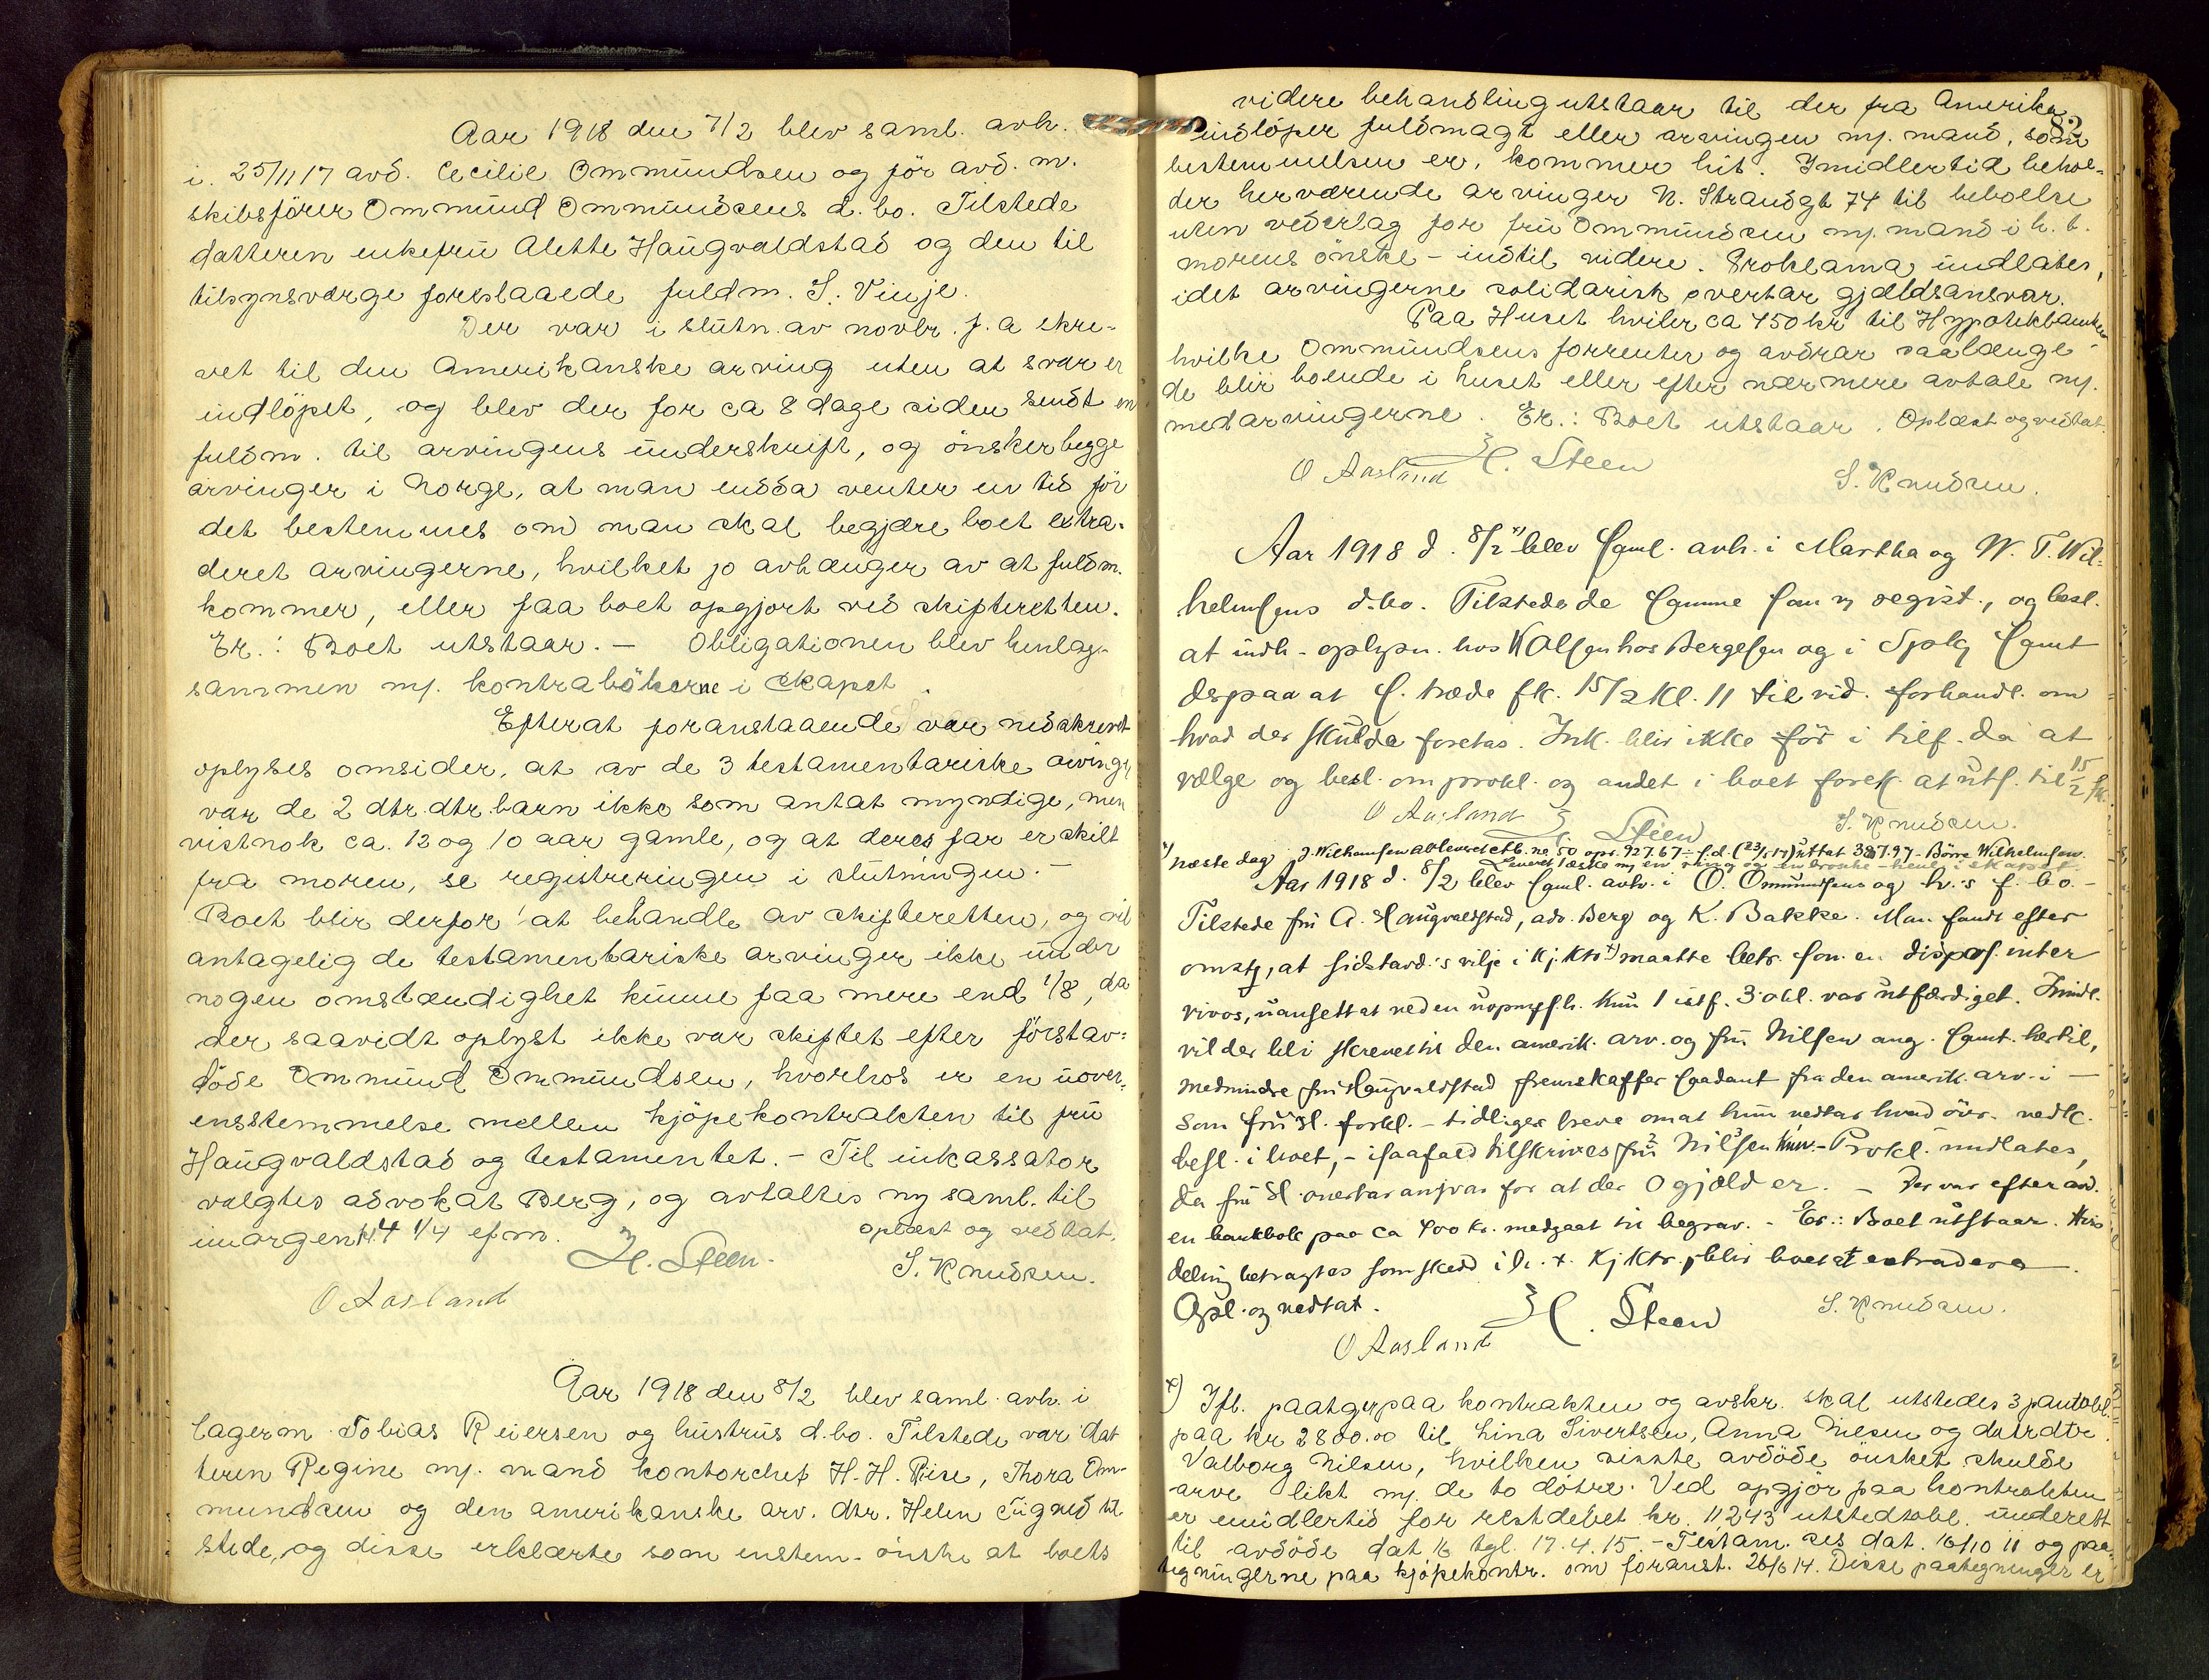 Aar 1918 den 7/2 blev saml. avh.
i. 25/11 17 avd. Cecilie Ommundsen og för avd. m.
skibsförer Ommund Ommundsens d. bo. Tilstede
datteren enkefru Alette Haugvaldstad og den til
tilsynsværge foreslaaede fuldm. S. Vinje.
Der var i slutn. av novbr. f. a skre-
vet til den Amerikanske arving uten at svar er
indlöpet, og blev der for ca 8 dage siden sendt en
fuldm. til arvingens underskrift, og önsker begge
arvinger i Norge, at man endda venter en tid för
det bestemmes om man skal begjære boet extra-
deret arvingerne, hvilket jo avhænger av at fuldm.
kommer, eller faa boet opgjort ved skifteretten.
Er.: Boet utstaar. — Obligationen blev henlagt
sammen m/. kontrabökerne i skapet.
Efterat foranstaaende var nedskrevet
oplyses omsider, at av de 3 testamentariske arvinger
var de 2 dtr. dtr. barn ikke som antat myndige, men
vistnok ca. 12 og 10 aar gamle, og at deres far er skilt
fra moren, se registreringen i slutningen. -
Boet blir derfor at behandle av skifteretten, og vil
antagelig de testamentariske arvinger ikke under
nogen omstændighet kunne faa mere end 1/8, da
der saavidt oplyst ikke var skiftet efter förstav-
döde Ommund Ommundsen, hvorhos er en uover-
ensstemmelse mellem kjöpekontrakten til fru
Haugvaldstad og testamentet. - Til inkassator
valgtes advokat Berg, og avtaltes ny saml. til
imorgen kl. 4 1/4 efm. oplæst og vedtat.
H. Steen. S. Knudsen.
O Aasland
Aar 1918 den 8/2 blev saml. avh. i
lagerm. Tobias Reiersen og hustrus d. bo. Tilstede var dat
teren Regine m/. mand kontorchef H. H. Riise, Thora Om-
mundsen og den amerikanske arv. dtr. Helen Tugned til
stede, og disse erklærte som enstem. önske at boets
82
videre behandling utstaar til der fra Amerika
indlöper fuldmagt eller arvingen m/. mand, som
bestemmelsen er, kommer hit. Imidlertid behol-
der herværende arvinger N. Strandgt 74 til beboelse
uten vederlag for fru Ommundsen m/. mand i h. t.
morens önske - indtil videre. Proklama undlates,
idet arvingerne solidarisk overtar gjældsansvar.
Paa Huset hviler ca 450 kr til Hypotekbanken
hvilke Ommundsens forrenter og avdrar saalænge
de blir boende i huset eller efter nærmere avtale m/.
medarvingerne. Er.: Boet utstaar. Oplæst og vedtat.
O Aasland H. Steen S. Knudsen.
Aar 1918 d. 8/2 x) blev saml. avh. i Martha og W. T. Wil-
helmsens d. bo. Tilstede de samme som v/ regist., og besl.
at indh. oplysn. hos Olsen hos Bergesen og i Spbk samt
derpaa at s. træde fk. 15/2 kl. 11 til vid. forhandl. om
hvad der skulde foretas. Ink. blir ikke för i tilf. da at
vælge og besl. om prokl. og andet i boet forek. at uts. til 15/2 fk.
O Aasland H. Steen S. Knudsen.
x) næste dag J. Wilhemsen avleveret ctb. no 50 opr. 927.67 ÷ f. d. (23/1 14) uttat 387.97 - Börre Wilhelmsen
Leveret 1 æske m/ en ring og en broche - henl. i skapet
Aar 1918 d. 8/2 blev saml. avh. i O. Ommundsens og h.s f. bo. -
Tilstede fru A. Haugvaldstad, adv. Berg og K. Bakke. Man fandt efter
omst/, at sidstavd.'s vilje i Kj. Ktr x) maatte betr. som en dispos. inter
vivos, uansett at ved en uopmss.h. kun 1 istf. 3 obl. var utfærdiget. Imidl.
vil der bli skrevet til den amerik. arv. og fru Nilsen ang. samt. hertil,
medmindre fru Haugvaldstad fremskaffer saadant fra den amerik. arv. i —
som fru H. forkl. - tidligere breve om at hun vedtar hvad övr. vedk.
besl. i boet, - isaafald tilskrives fru Nilsen kun. - Prokl. undlates,
da fru H. overtar ansvar for at der 0 gjæld er. — Der var efter avd.
en bankbok paa ca 400 kr. medgaat til begrav. - Er.: Boet utstaar. Hvis
deling betragtes som skedd i h. t. Kj Ktr. blir boet at extradere.
Opl. og vedtat. H. Steen S. Knudsen.
O Aasland
x) Ifl. paategn paa kontrakten og avskr. skal utstedes 3 pantobl.
paa kr 2800.00 til Lina Sivertsen, Anna Nilsen og datrdtr.
Valborg Nilsen, hvilken sisste avdöde önsket skulde
arve likt m/. de to dötre. Ved opgjör paa kontrakten
er imidlertid for restdebet kr. 11243 utstedt obl. underett
til avdöde dat. 16 tgl. 17.4.15. - Testam. ses dat. 16/10 11 og paa-
tegningerne paa kjöpekontr. om foranst. 26/6 14. Disse paategninger er